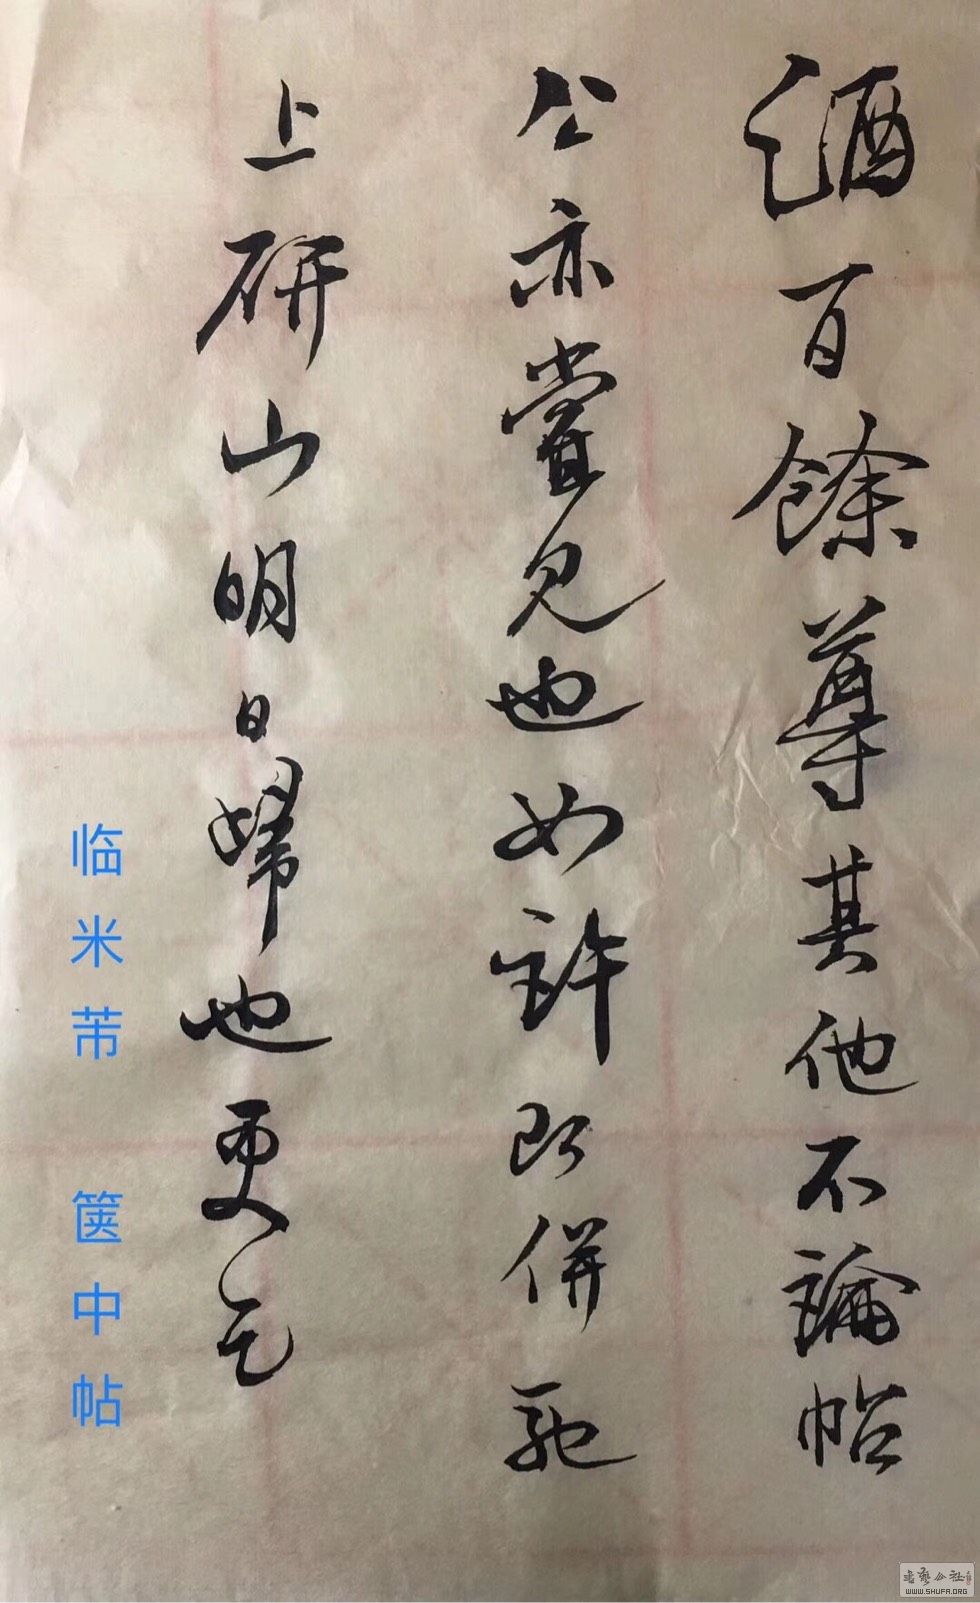 酒百餘尊其他不論帖
公亦嘗見也如許即併馳
上研山明日歸也更乞
临米芾 箧中帖
WWW.SHUFA.ORG